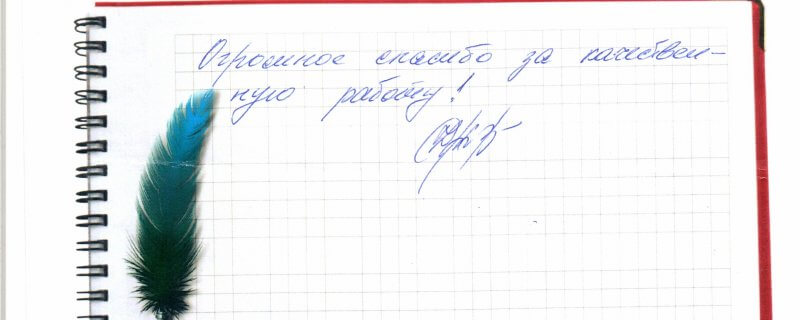 Огромное спасибо за качествен-
ную работу!